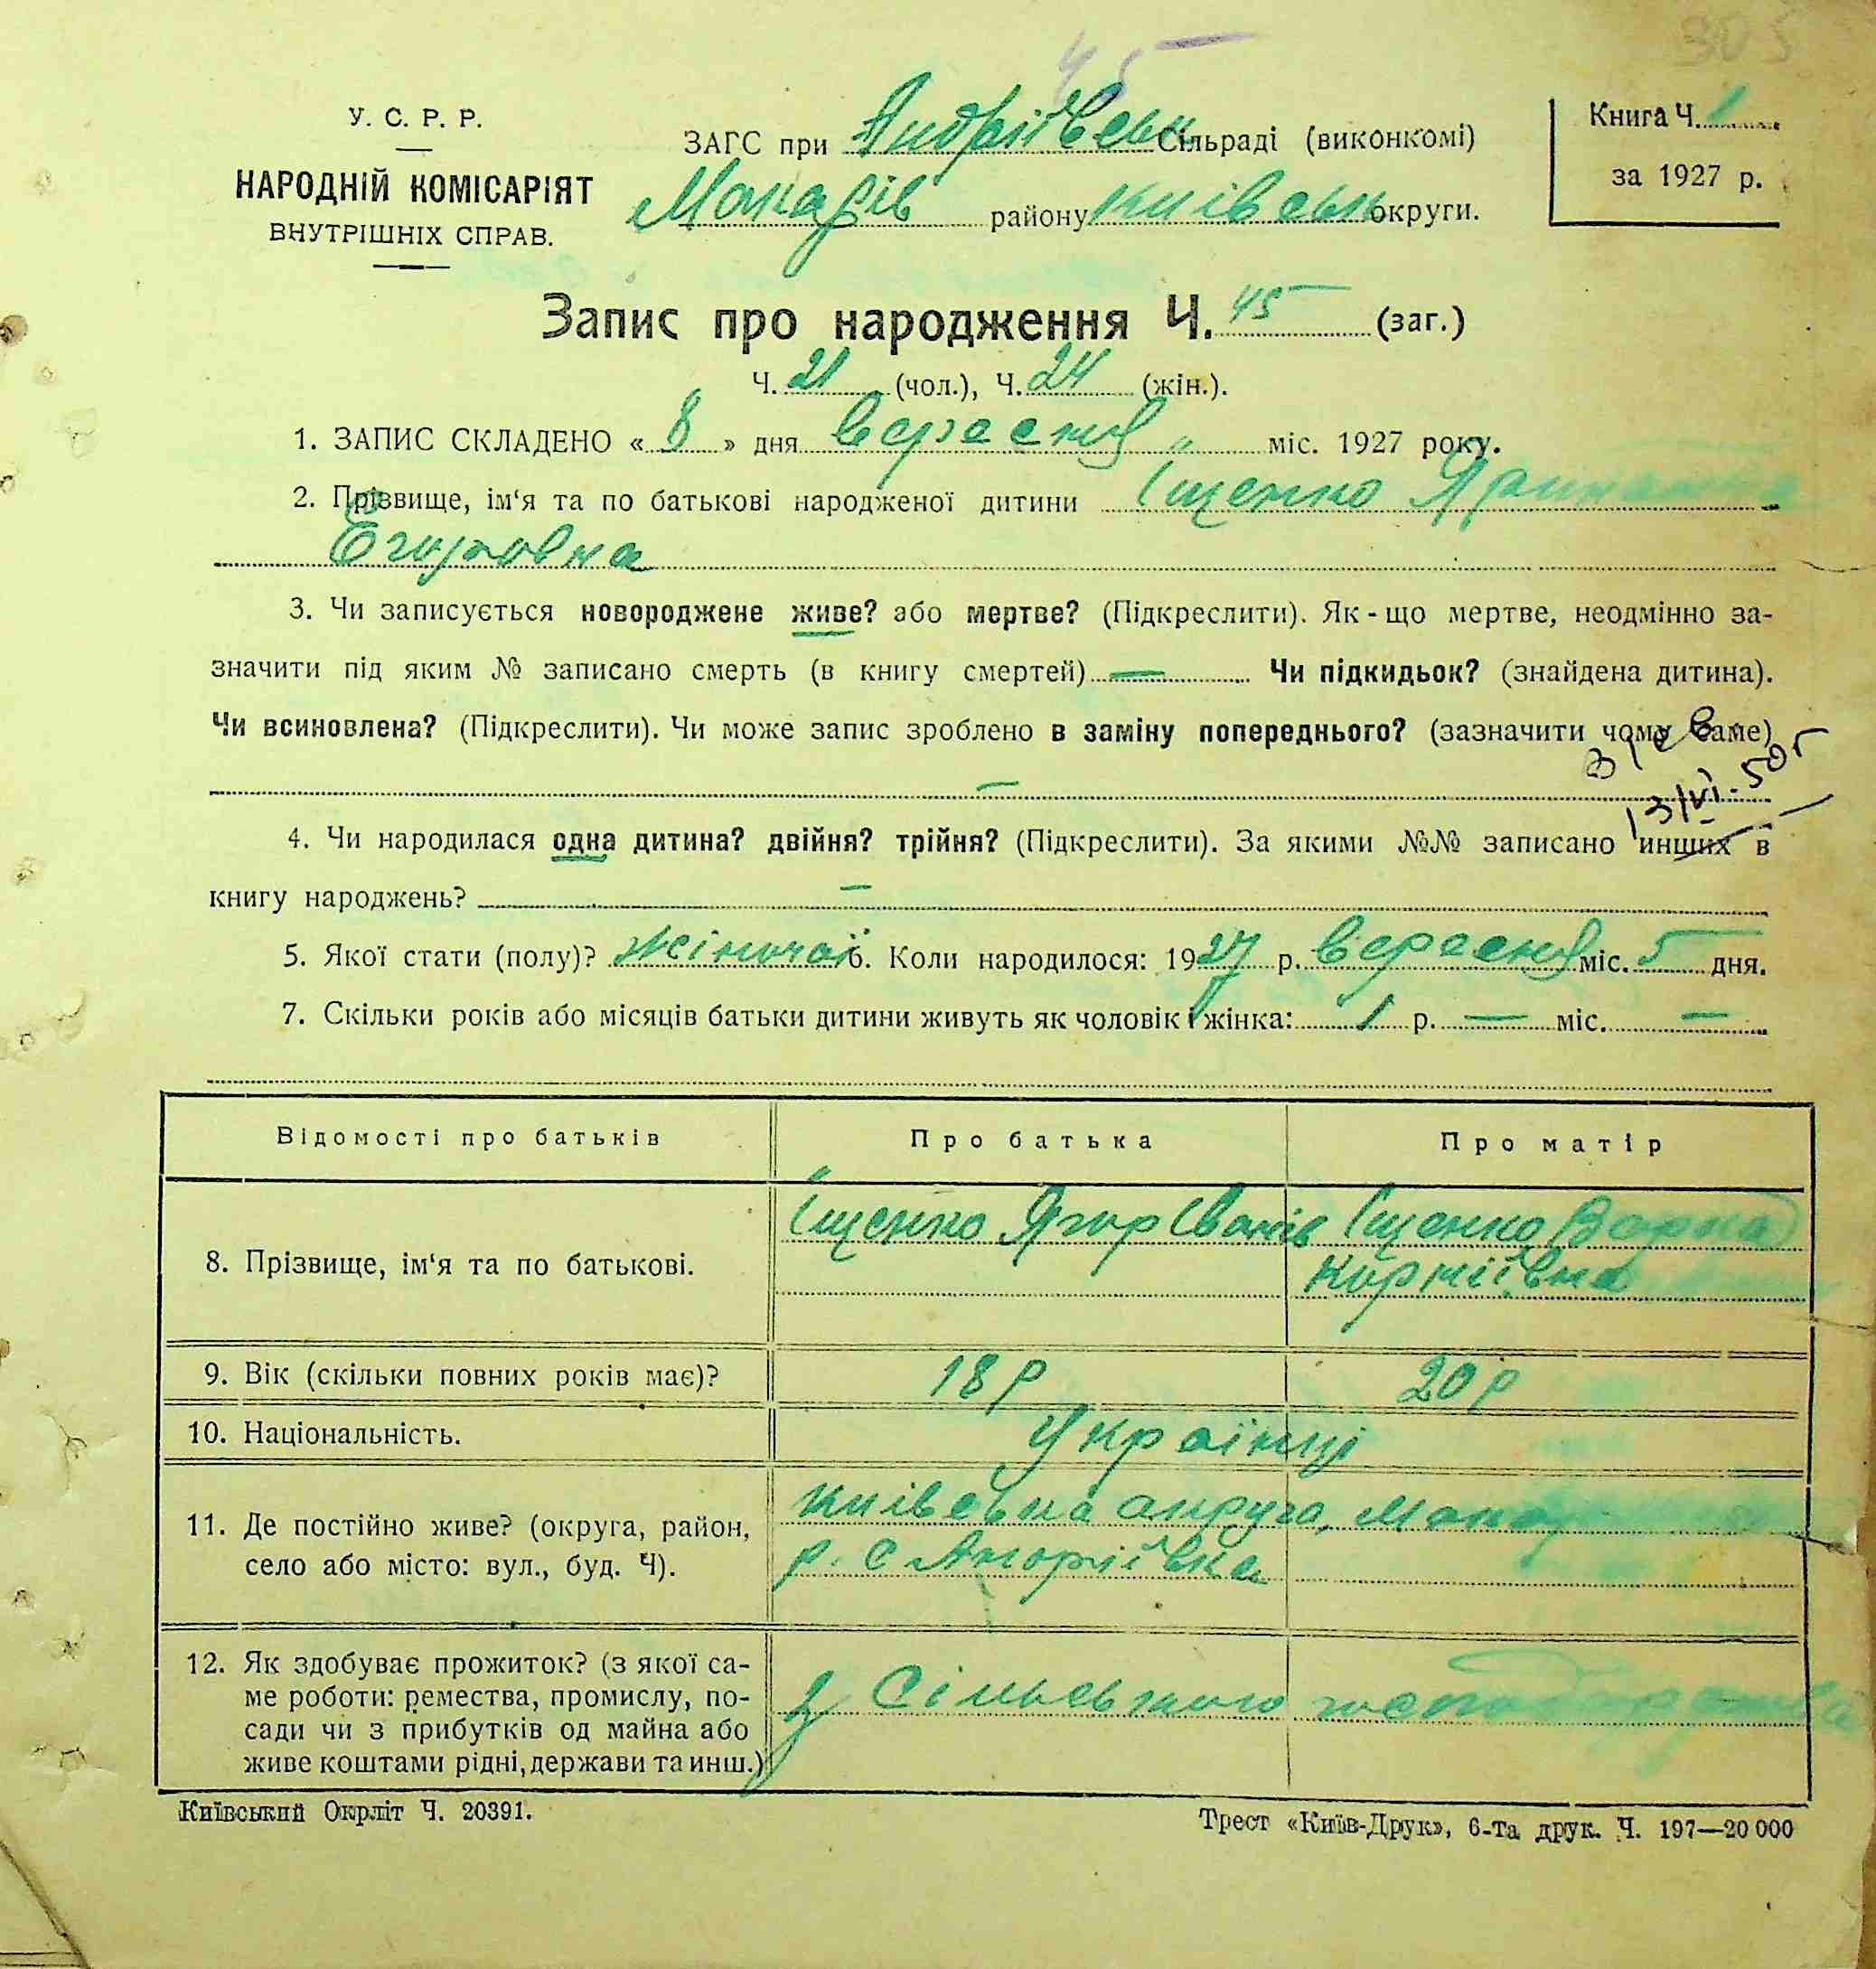 305
45
У. С. Р. Р.
НАРОДНІЙ КОМІСАРІЯТ
ВНУТРІШНІХ СПРАВ.
ЗАГС при Андріївськ Сільраді (виконкомі)
Макарів району Київськ округи.
Книга Ч. 1
за 1927 р.
Запис про народження Ч. 45 (заг.)
Ч. 21 (чол.), Ч. 24 (жін.).
1. ЗАПИС СКЛАДЕНО « 8 » дня вересня міс. 1927 року.
2. Прізвище, ім‘я та по батькові народженої дитини Іщенко
Єгоровна
3. Чи записується новороджене живе? або мертве? (Підкреслити). Як-що мертве, неодмінно за-
значити під яким № записано смерть (в книгу смертей) — Чи підкидьок? (знайдена дитина).
Чи всиновлена? (Підкреслити). Чи може запис зроблено в заміну попереднього? (зазначити чому саме)
—
13/VI-50г
4. Чи народилася одна дитина? двійня? трійня? (Підкреслити). За якими №№ записано инших в
книгу народжень? —
5. Якої стати (полу)? жіночої 6. Коли народилося: 1927 р. вересня міс. 5 дня.
7. Скільки років або місяців батьки дитини живуть як чоловік і жінка: 1 р. — міс. —
Відомості про батьків Про батька Про матір
8. Прізвище, ім‘я та по батькові. Іщенко Ягор Іванів Іщенко
Корніївна
9. Вік (скільки повних років має)? 18 р 20 р
10. Національність. Українці
11. Де постійно живе? (округа, район, село або місто: вул., буд. Ч). Київська округа,
р. с Андріївка
12. Як здобуває прожиток? (з якої са-
ме роботи: ремества, промислу, по-
сади чи з прибутків од майна або
живе коштами рідні, держави та инш.)
з Сільського господарства
Київський Окрліт Ч. 20391.
Трест «Київ-Друк», 6-та друк. Ч. 197—20 000